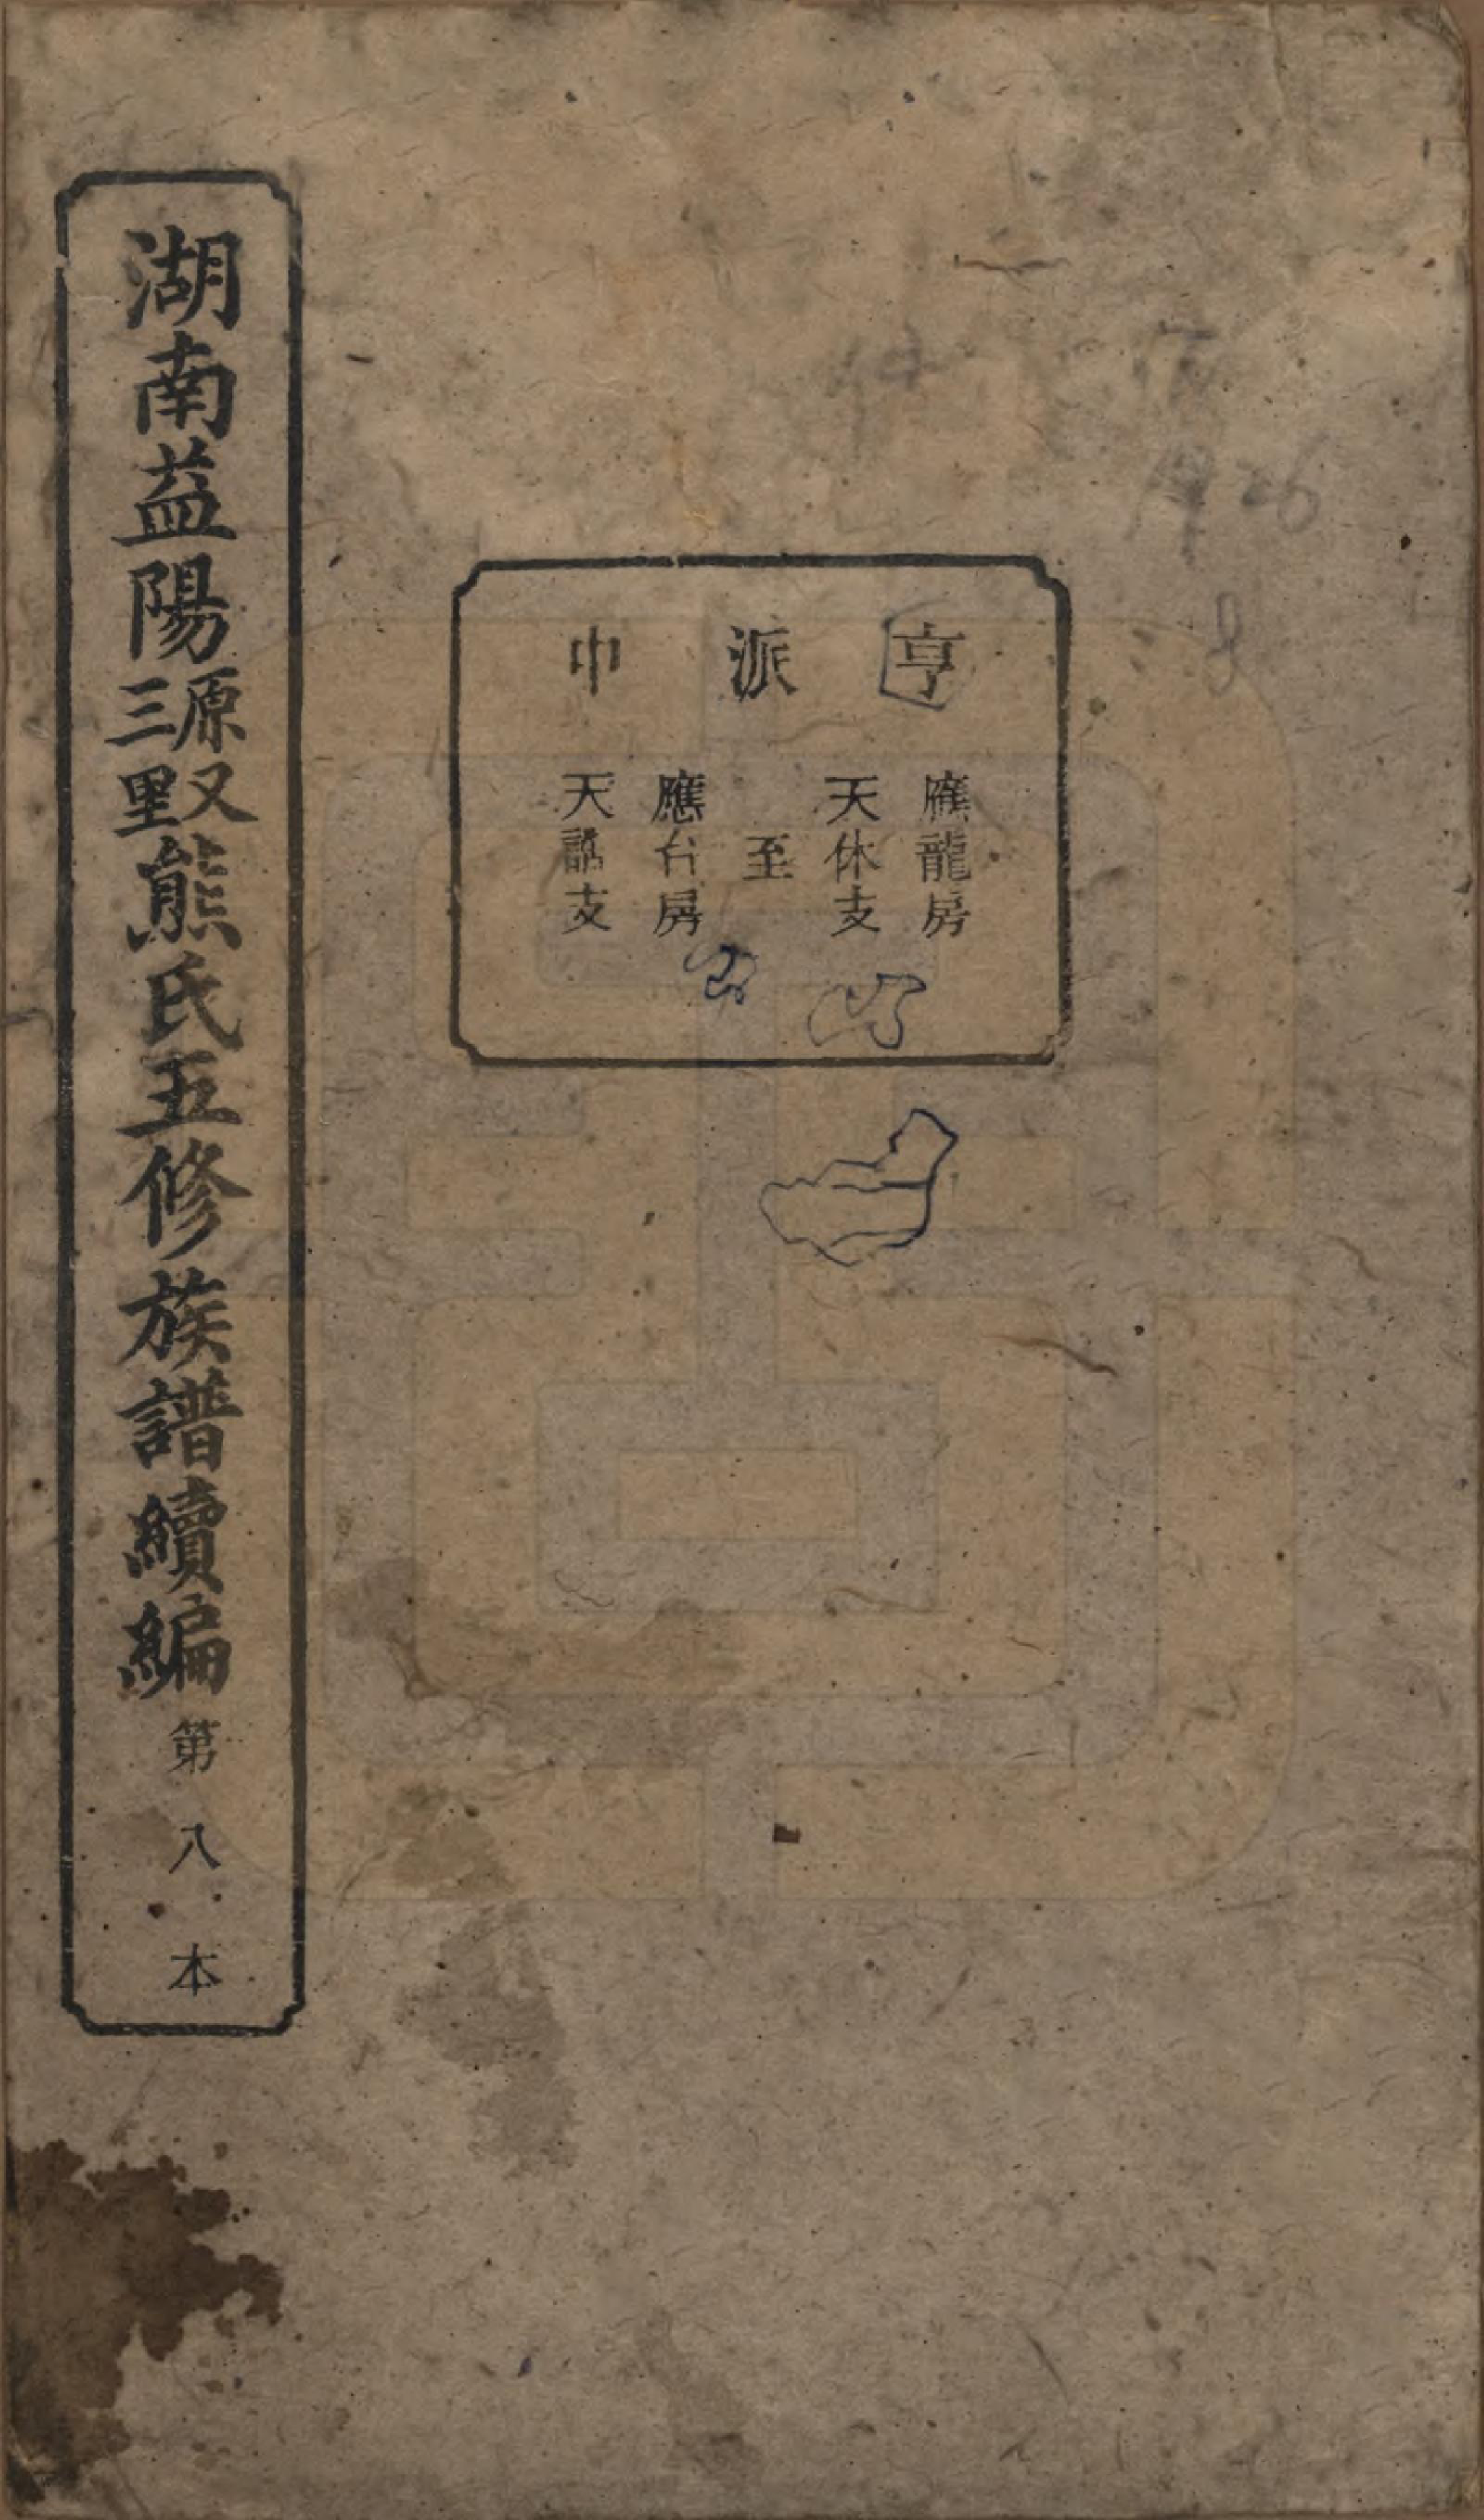 亨派中
應龍房
天休支
至
應台房
天誥支
湖南益陽源又三里熊氏五修族譜續編第八本